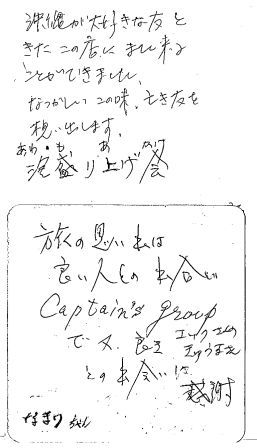 沖縄が大好きな友と
きたこの店にまた来る
ことができました。
なつかしいこの味、亡き友を
想い出します。
あわ・も
泡盛り上げ会
旅の思い出は
良い人との出合い
Captain's group
で又、良き
との出会いに
感謝